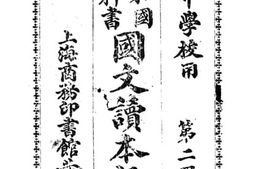 中學校用
國
科書
國文讀本
第二
上海商務印書館